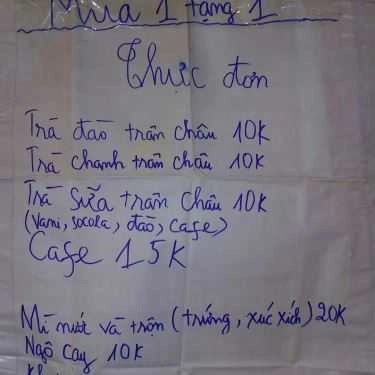 Mua 1 tạng 1
Thực đơn
Trà đào trân châu 10K
Trà chanh trân châu 10K
Trà sữa trân châu 10K
(vani, socola, đào, cafe)
Cafe 15K
Mì nước và trộn (trứng, xúc xích) 20K
Ngô cay 10K